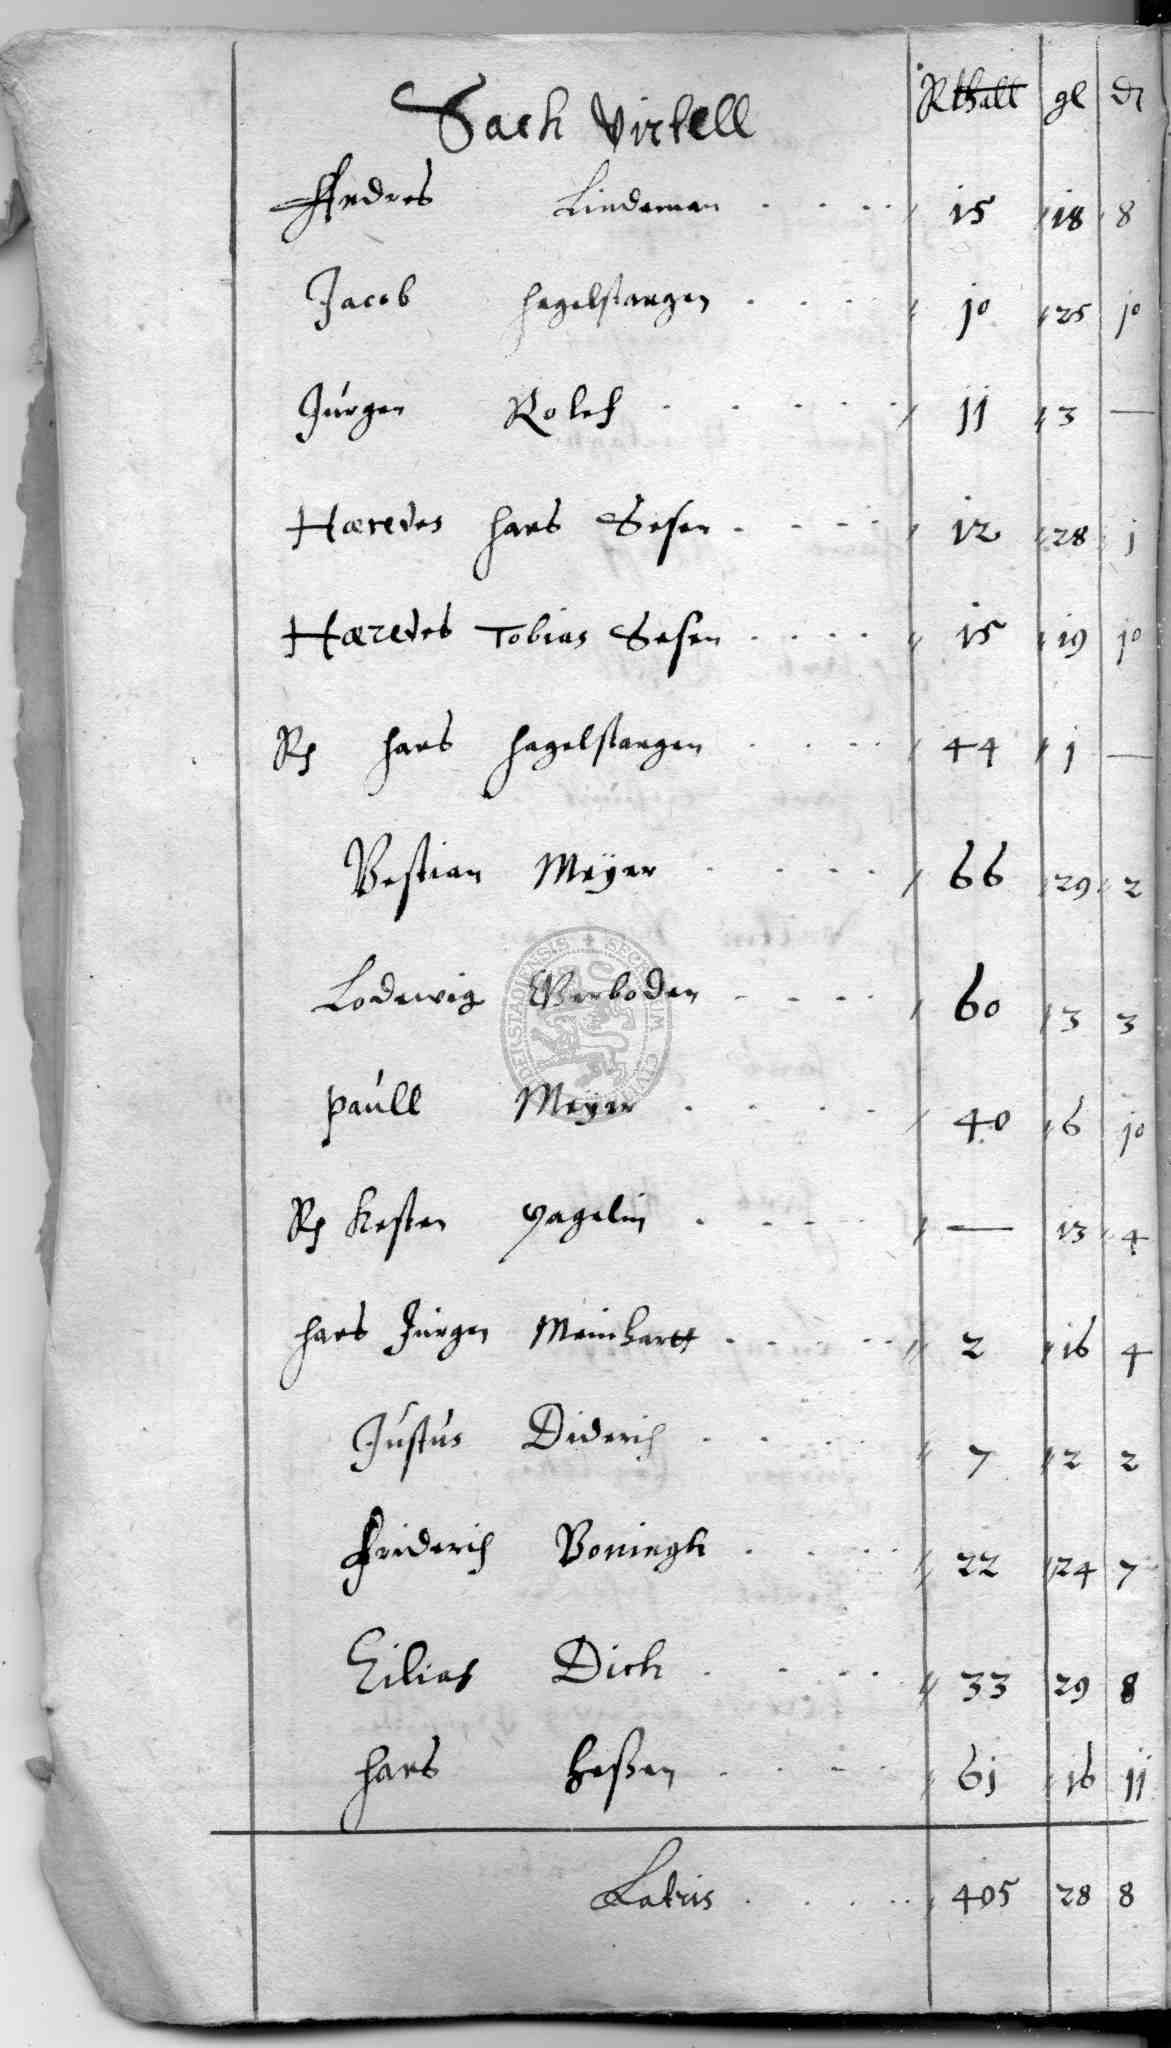 Sack Virtell Rthall gl d
Andres Lindeman 15 18 8
Jacob Hagelstangen 10 25 10
Jürgen Rolef 11 3 —
Hæredes Hans Sesen 12 28 1
Hæredes Tobias Sesen 15 19 10
Rp Hans Hagelstangen 44 1 —
Bestian Meÿer 66 29 2
Lodewig Werboden 60 3 3
Paúll Meÿer 40 6 10
Rp Kesten 13 4
Hans Jürgen Meinhartt 2 16 4
Justús Diderich 7 2 2
Friderich Boningk 22 24 7
Eilias Dick 33 29 8
Hans Heßen 61 16 11
Latris 405 28 8